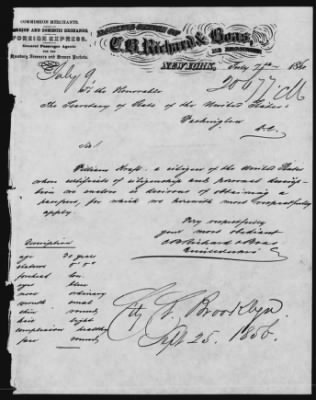 COMMISSION MERCHANTS.
FOREIGN AND DOMESTIC EXCHANGE
FOREIGN EXPRESS.
General Passenger Agents
for the
Hamburg Steamers and Bremen Packets.
C. B. Richard & Boas,
NEW YORK, July
July 9
To the Honorable
The Secretary of State of the United States
Washington
D.C.
Sir
William Kraft a citizen of the United States
whose certificate of citizenship and personal descrip-
tion we enclose is desirous of obtaining a
passport, for which we herewith most respectfully
apply.
Very respectfully
your most obedient
C B Richard & Boas
Description
age 30 years
stature 5' 5"
forehead
eyes blue
nose ordinary
mouth small
chin round
hair light
complexion healthy
face round
City of Brooklyn.
Sept 25. 1856.